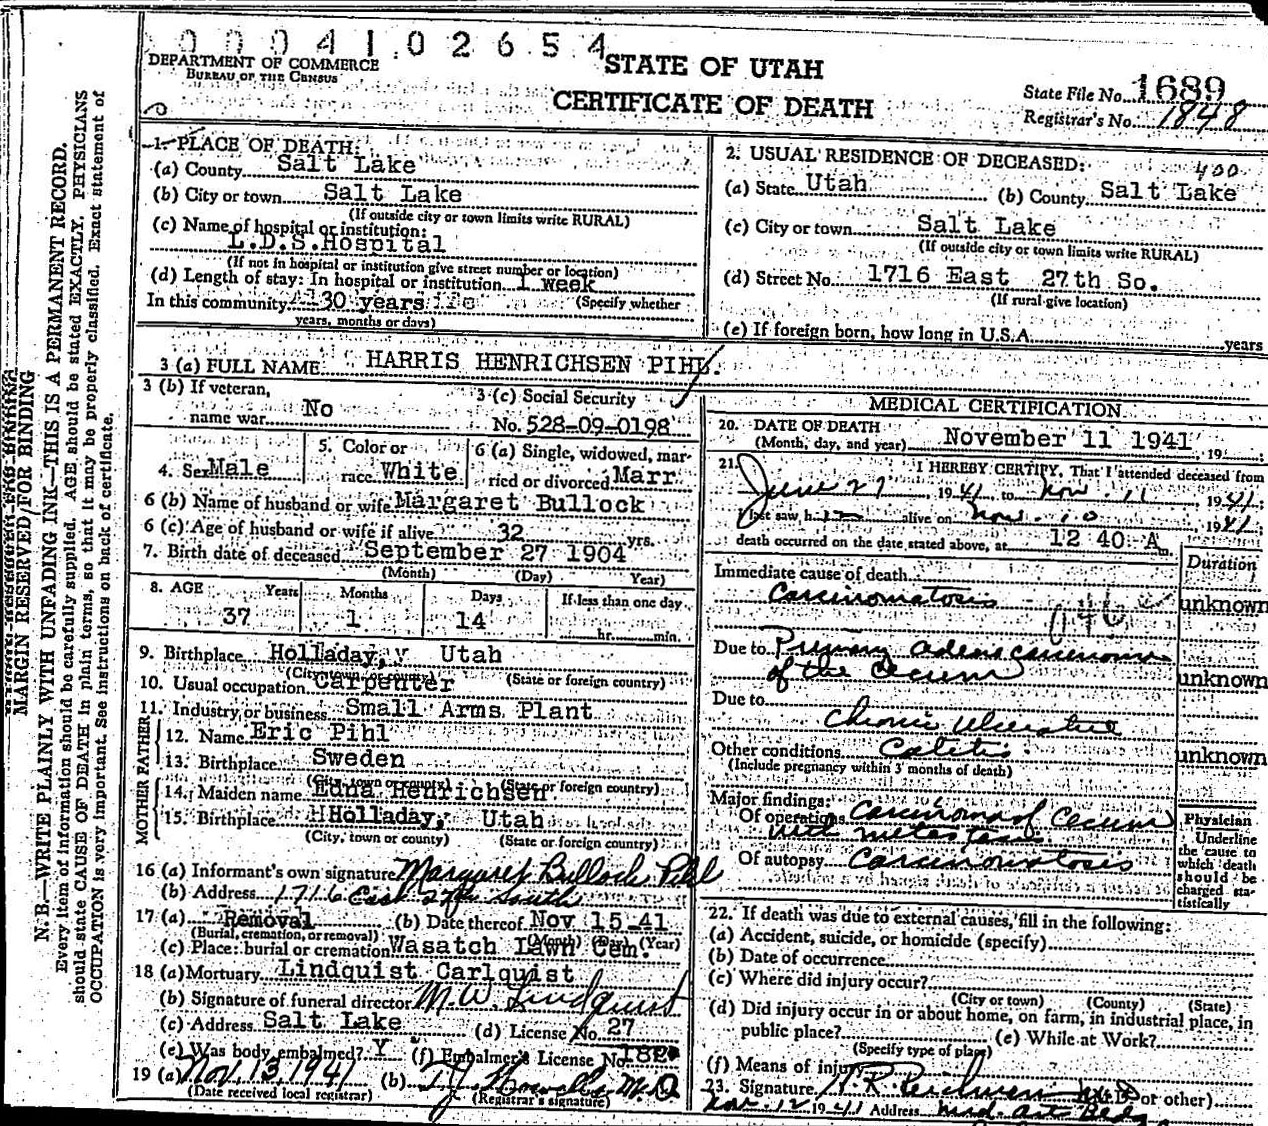 000410 2654
DEPARTMENT OF COMMERCE
BUREAU OF THE CENSUS
STATE OF UTAH
CERTIFICATE OF DEATH
State File No. 1689
Registrar's No. 1848
MARGIN RESERVED FOR BINDING
N. B.—WRITE PLAINLY WITH UNFADING INK—THIS IS A PERMANENT RECORD.
Every item of information should be carefully supplied. AGE should be stated EXACTLY. PHYSICIANS
should state CAUSE OF DEATH in plain terms, so that it may be properly classified. Exact statement of
OCCUPATION is very important. See instructions on back of certificate.
1. PLACE OF DEATH:
(a) County Salt Lake
(b) City or town Salt Lake
(If outside city or town limits write RURAL)
(c) Name of hospital or institution:
L.D.S. Hospital
(If not in hospital or institution give street number or location)
(d) Length of stay: In hospital or institution 1 week
In this community 30 years (Specify whether
years, months or days)
2. USUAL RESIDENCE OF DECEASED: 400
(a) State Utah (b) County Salt Lake
(c) City or town Salt Lake
(If outside city or town limits write RURAL)
(d) Street No. 1716 East 27th So.
(If rural give location)
(e) If foreign born, how long in U.S.A. years
3 (a) FULL NAME HARRIS HENRICHSEN PIHL.
3 (b) If veteran,
name war No
3 (c) Social Security
No. 528-09-0198
4. Sex Male
5. Color or
race White
6 (a) Single, widowed, mar-
ried or divorced Marr
6 (b) Name of husband or wife Margaret Bullock
6 (c) Age of husband or wife if alive 32 yrs.
7. Birth date of deceased September 27 1904
(Month) (Day) Year)
8. AGE Years Months Days If less than one day
37 1 14 hr. min.
9. Birthplace Holladay, Utah
(City, town or county) (State or foreign country)
10. Usual occupation Carpenter
11. Industry or business Small Arms Plant
FATHER
12. Name Eric Pihl
13. Birthplace Sweden
(City, town or county) (State or foreign country)
MOTHER
14. Maiden name Edna Henrichsen
15. Birthplace Holladay, Utah
(City, town or county) (State or foreign country)
16 (a) Informant's own signature Margaret Bullock Pihl
(b) Address 1716 East 27th South
17 (a) Removal (b) Date thereof Nov 15-41
(Burial, cremation, or removal) (Month) (Day) (Year)
(c) Place: burial or cremation Wasatch Lawn Cem.
18 (a) Mortuary Lindquist Carlquist
(b) Signature of funeral director M.W. Lindquist
(c) Address Salt Lake (d) License No. 27
(e) Was body embalmed? Y (f) Embalmer's License No.
19 (a) Nov. 13, 1941 (b) M.D.
(Date received local registrar) (Registrar's signature)
MEDICAL CERTIFICATION
20. DATE OF DEATH
(Month, day, and year) November 11 1941, 19
21. I HEREBY CERTIFY, That I attended deceased from
June 27, 1941, to Nov. 11, 1941;
I last saw him alive on Nov. 10, 1941;
death occurred on the date stated above, at 12 40 A m.
Duration
Immediate cause of death
Carcinomatosis unknown
Due to Primary adenocarcinoma
of the Cecum unknown
Due to
Chronic Ulcerative
Other conditions Colitis. unknown
(Include pregnancy within 3 months of death)
Major findings:
Of operations Carcinoma of Cecum
with metastasis
Of autopsy Carcinomatosis
Physician
Underline
the cause to
which death
should be
charged sta-
tistically
22. If death was due to external causes, fill in the following:
(a) Accident, suicide, or homicide (specify)
(b) Date of occurrence
(c) Where did injury occur?
(City or town) (County) (State)
(d) Did injury occur in or about home, on farm, in industrial place, in
public place? (e) While at Work?
(Specify type of place)
(f) Means of injury
23. Signature R. (M.D. or other)
Nov. 12 1941 Address Med. Art Bldg